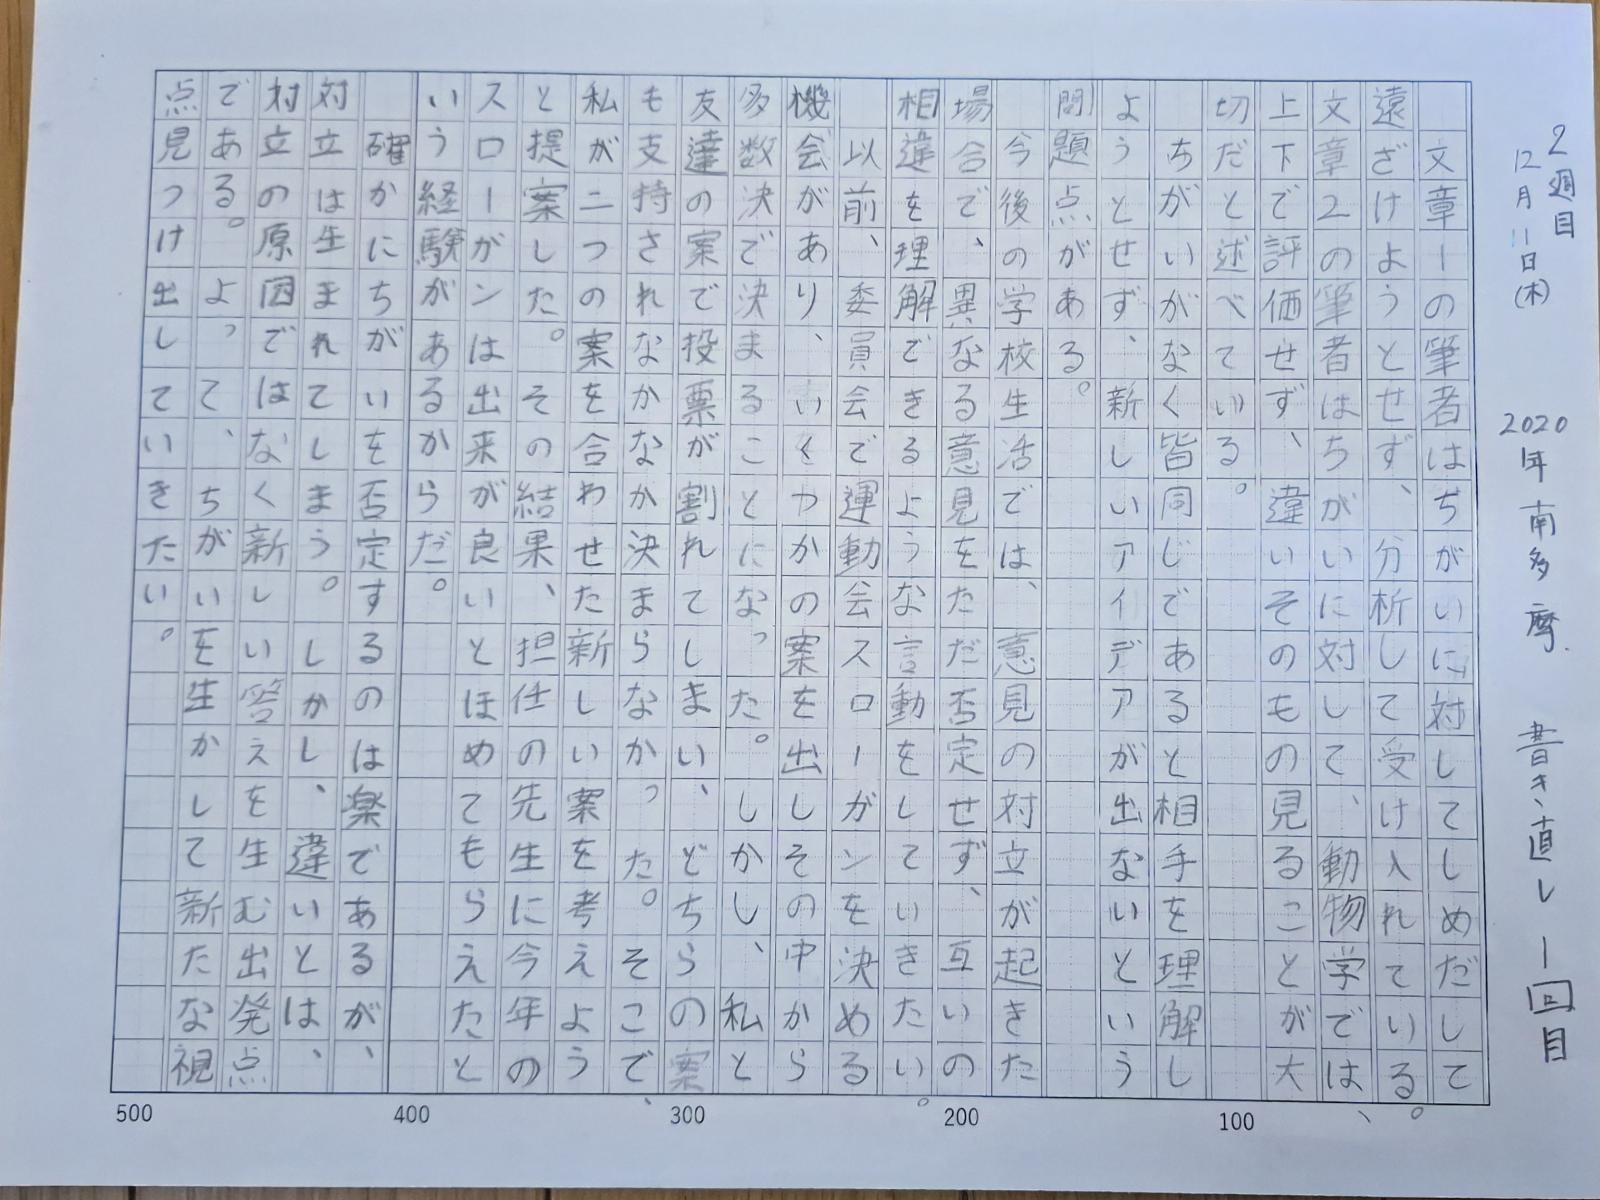 2週目
12月11日(木)
2020年 南多摩 書き直し 1回目
文章1の筆者はちがいに対してしめだして
遠ざけようとせず、分析して受け入れている。
文章2の筆者はちがいに対して、動物学では、
上下で評価せず、違いそのもの見ることが大
切だと述べている。
ちがいがなく皆同じであると相手を理解し
ようとせず、新しいアイデアが出ないという
問題点がある。
今後の学校生活では、意見の対立が起きた
場合で、異なる意見をただ否定せず、互いの
相違を理解できるような言動をしていきたい。
以前、委員会で運動会スローガンを決める
機会があり、いくつかの案を出しその中から
多数決で決まることになった。しかし、私と
友達の案で投票が割れてしまい、どちらの案
も支持されなかなか決まらなかった。そこで、
私が二つの案を合わせた新しい案を考えよう
と提案した。その結果、担任の先生に今年の
スローガンは出来が良いとほめてもらえたと
いう経験があるからだ。
確かにちがいを否定するのは楽であるが、
対立は生まれてしまう。しかし、違いとは、
対立の原因ではなく新しい答えを生む出発点
である。よって、ちがいを生かして新たな視
点見つけ出していきたい。
100
200
300
400
500